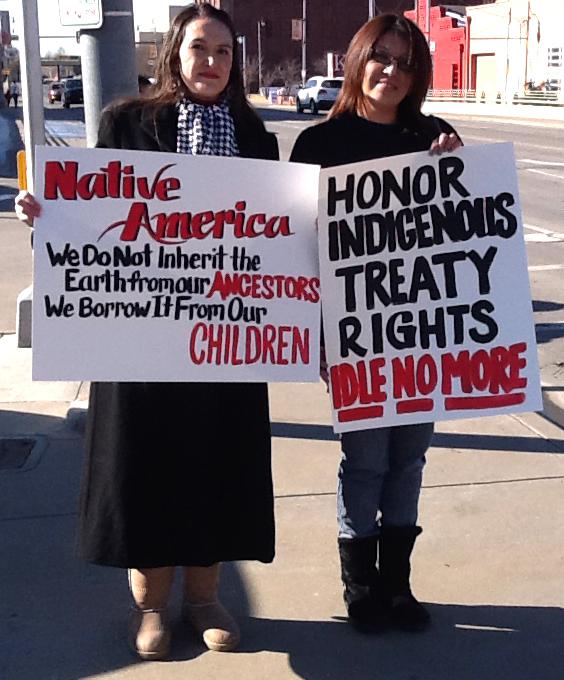 Native
America
We Do Not Inherit the
Earth from our ANCESTORS
We Borrow It From Our
CHILDREN
HONOR
INDIGENOUS
TREATY
RIGHTS
IDLE NO MORE